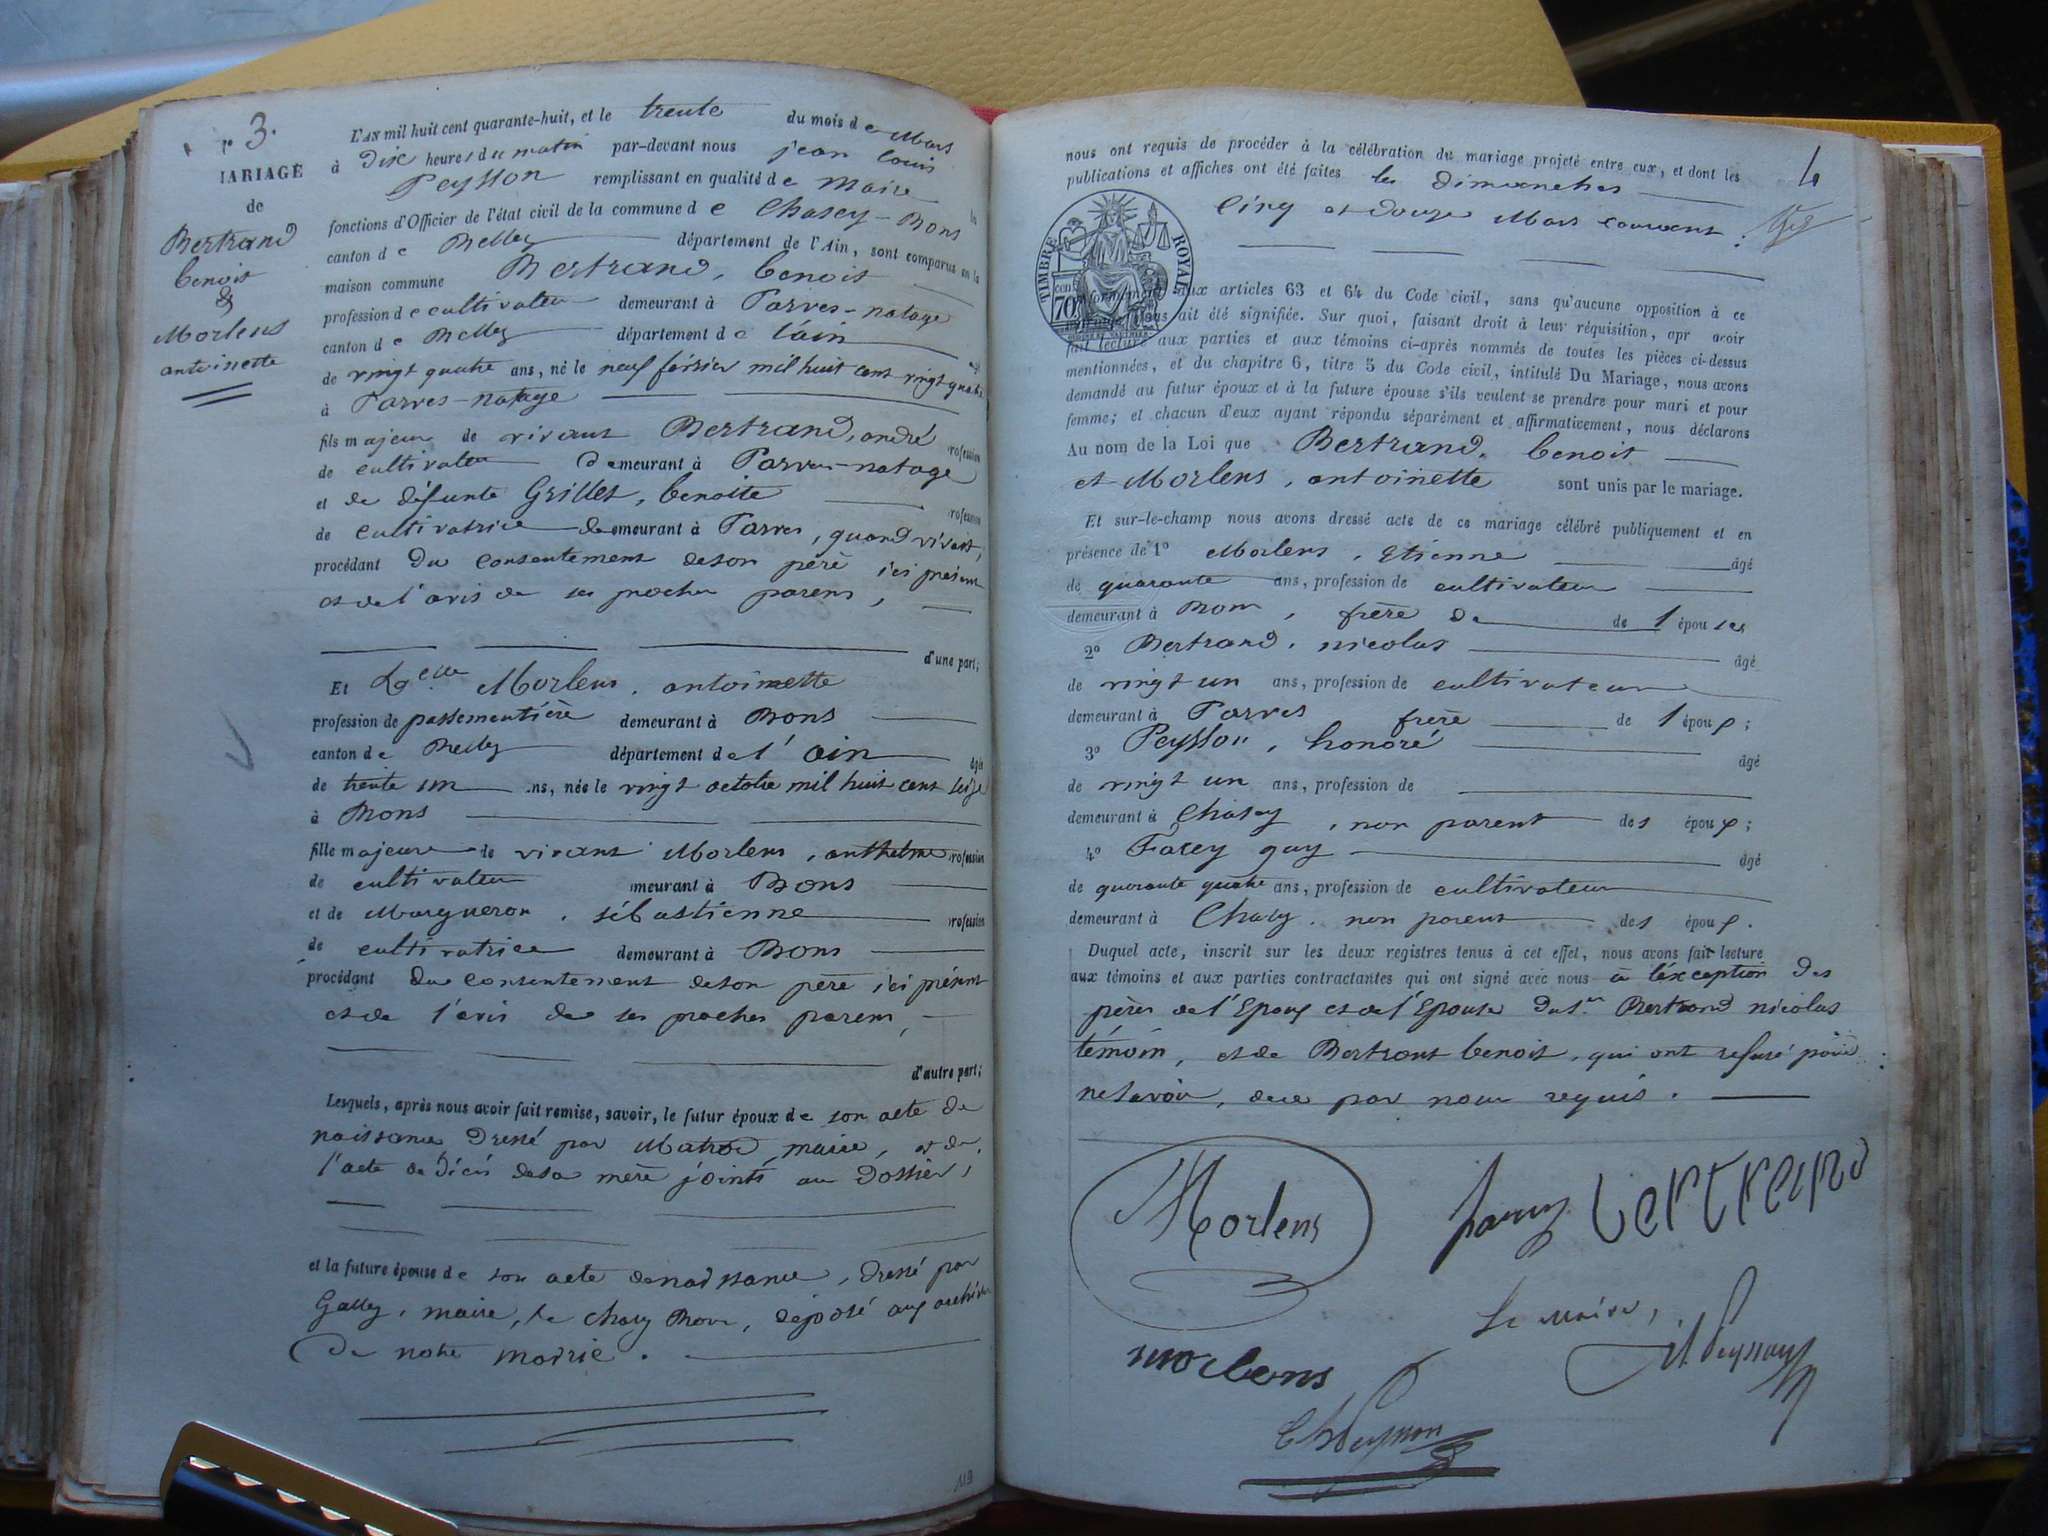 n° 3.
MARIAGE
de
Bertrand
benoit
&
Morlens
antoinette
L'AN mil huit cent quarante-huit, et le trente du mois de Mars
à Dix heures du matin par-devant nous jean louis
Peysson remplissant en qualité de Maire la
fonctions d'Officier de l'état civil de la commune de Chasey-Bons
canton de Belley département de l'Ain, sont comparus en la
maison commune Bertrand, benoit
profession de cultivateur demeurant à Parves-natage
canton de Belley département de l'ain
de vingt quatre ans, né le neuf février mil huit cent vingt quatre
à Parves-natage
fils majeur de vivant Bertrand, andré profession
de cultivateur demeurant à Parves-natage
et de défunte Grillet, benoite profession
de cultivatrice demeurant à Parves, quand vivait,
procédant du consentement de son père ici présent
et de l'avis de ses proches parens,
d'une part;
Et Dlle Morlens, antoinette
profession de passementière demeurant à Bons
canton de Belley département de l'ain âgée
de trente un ans, née le vingt octobre mil huit cent seize
à Bons
fille majeure de vivant Morlens, anthelme profession
de cultivateur demeurant à Bons
et de Margueron, sébastienne profession
de cultivatrice demeurant à Bons
procédant du consentement de son père ici présent
et de l'avis de ses proches parens,
d'autre part;
Lesquels, après nous avoir fait remise, savoir, le futur époux de son acte de
naissance dressé par maire, et de
l'acte de décès de sa mère joints au Dossier,
et la future épouse de son acte de naissance, dressé par
Gallay, maire, de Chasey Bons, déposé aux archives
de notre mairie.
113
4
nous ont requis de procéder à la célébration du mariage projeté entre eux, et dont les
publications et affiches ont été faites les dimanches
Cinq et douze Mars courant;
TIMBRE ROYAL
70
conformément aux articles 63 et 64 du Code civil, sans qu'aucune opposition à ce
mariage nous ait été signifiée. Sur quoi, faisant droit à leur réquisition, apr avoir
fait lecture aux parties et aux témoins ci-après nommés de toutes les pièces ci-dessus
mentionnées, et du chapitre 6, titre 5 du Code civil, intitulé Du Mariage, nous avons
demandé au futur époux et à la future épouse s'ils veulent se prendre pour mari et pour
femme; et chacun d'eux ayant répondu séparément et affirmativement, nous déclarons
Au nom de la Loi que Bertrand, benoit
et Morlens, antoinette sont unis par le mariage.
Et sur-le-champ nous avons dressé acte de ce mariage célébré publiquement et en
présence de 1° Morlens, Etienne âgé
de quarante ans, profession de cultivateur
demeurant à Bons, frère de de l épouse
2° Bertrand, nicolas âgé
de vingt un ans, profession de cultivateur
demeurant à Parves frère de l époux;
3° Peysson, honoré âgé
de vingt un ans, profession de
demeurant à Chasey, non parent des époux;
4° Farcy guy âgé
de quarante quatre ans, profession de cultivateur
demeurant à Chasey, non parent des époux.
Duquel acte, inscrit sur les deux registres tenus à cet effet, nous avons fait lecture
aux témoins et aux parties contractantes qui ont signé avec nous à l'exception des
pères de l'Epoux et de l'Epouse du Sr Bertrand nicolas
témoin, et de Bertrant benoit, qui ont refusé pour
ne savoir, de ce par nous requis.
Morlens
bertrand
Le Maire,
Peysson
morlens
Peysson